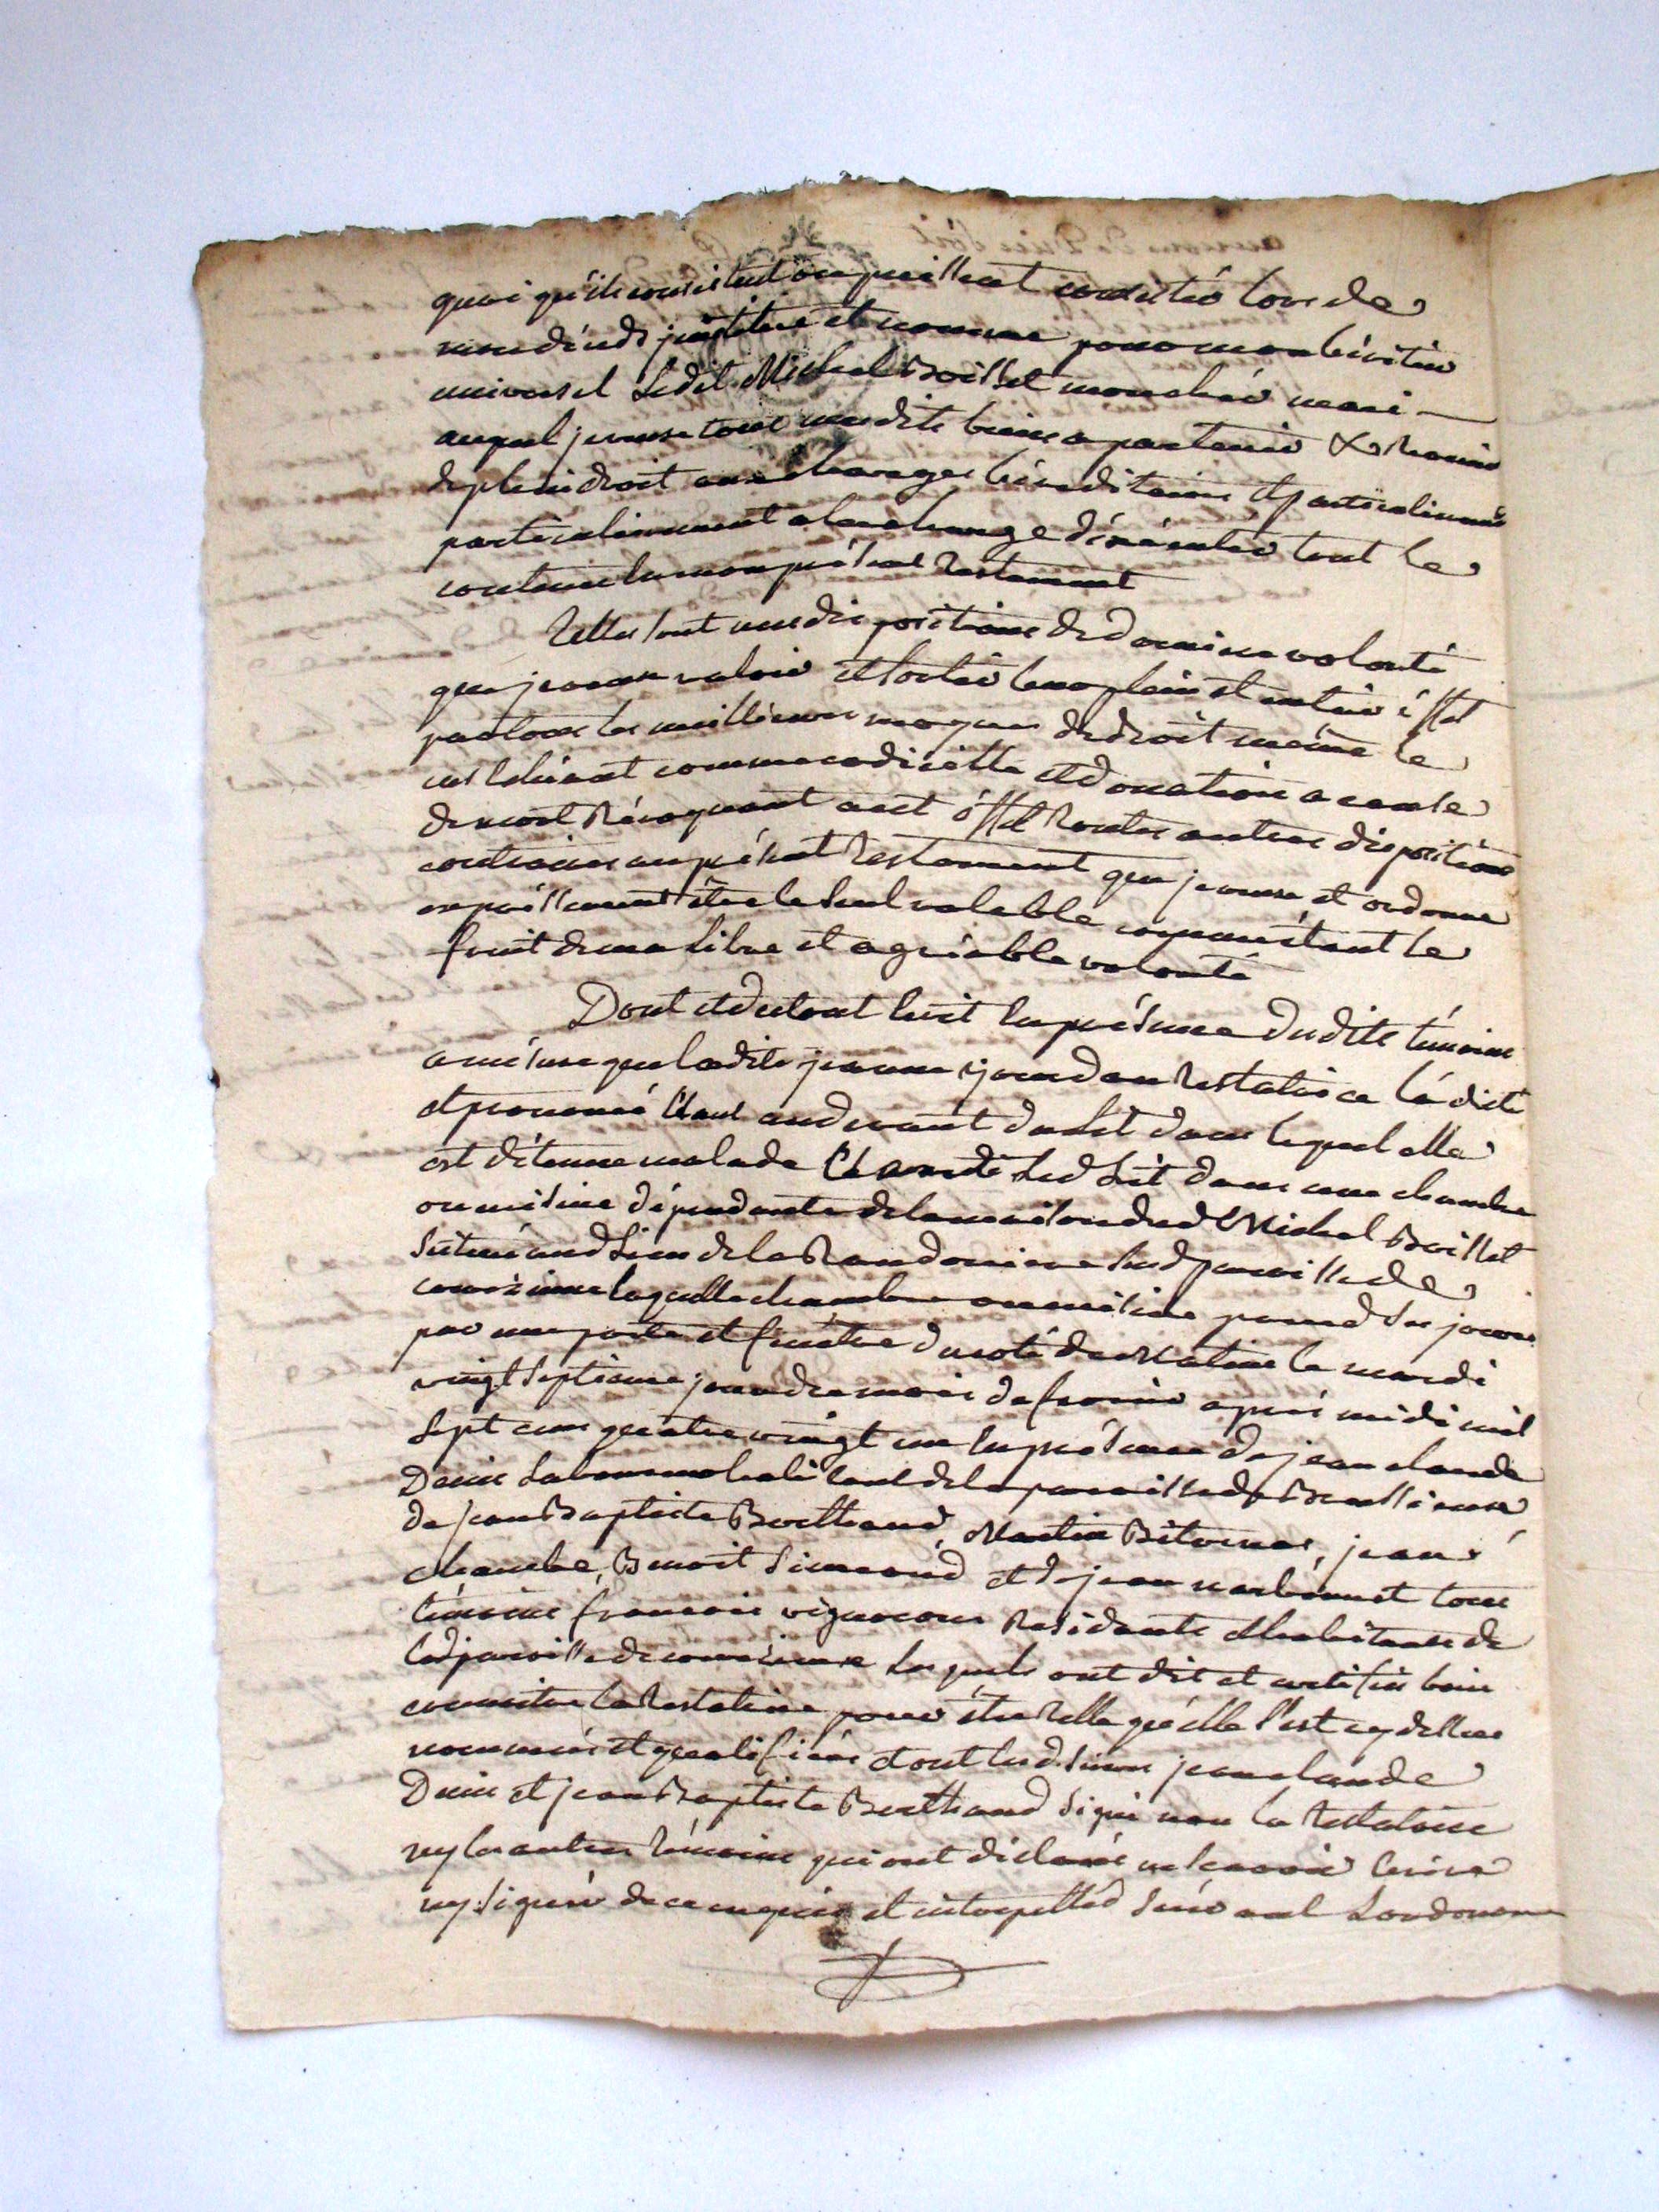 quoi qu'ils consistent ou puissent consister lors de
mon déceds j'institue et nomme pour mon héritier
universel Ledit Michel Boisset mon cher mari
auquel je veux tous mesdits biens apartenir &
de plein droit aux charges héréditaires et particulierement
particulierement a la charge d'éxécuter tout le
contenu en mon présent testament
Telles sont mes dispositions de derniere volonté
que je veux valoir et sortir leur plein et entier éffet
par tous les meilleurs moyens de droit même le
cas échéant comme codicille et donation a cause
de mort Révoquant a cet éffet toutes autres dispositions
contraires au présent testament que je veux et ordonne
être le seul valable comme étant le
fruit de ma libre et agréable volonté
Dont et du tout écrit en présence dudits témoins
a mésure que ladite jeanne jourdan testatrice l'a dicté
et prononcé étant au devant du lit dans lequel elle
est détenue malade led Lit dans une chambre
ou cuisine dépendante de la maison dud Michel Boisset
située aud Lieu de la Randonniere susd paroisse de
laquelle chambre ou cuisine prend ses jours
par une porte et fenêtre du coté de Matin le mardi
vingt septieme jour du mois de fevrier aprés midi mil
sept cens quatre vingt un en présence de jean claude
Denis Laboureur habitant de la paroisse de
de jean Baptiste Berthaud, Martin jean
Benoit Simeond et de jean tous
témoins françois vignerons Residants et habitans de
lad paroisse de lesquels ont dit et certifié bien
connoitre la testatrice pour être telle qu'elle l'est cy dessus
nommée et qualifiée et ont lesd. sieurs jean claude
Denis et jean Baptiste Berthaud signé non la testatrice
ny les autres témoins qui ont déclaré ne sçavoir écrire
ny signer de ce enquis et interpellés